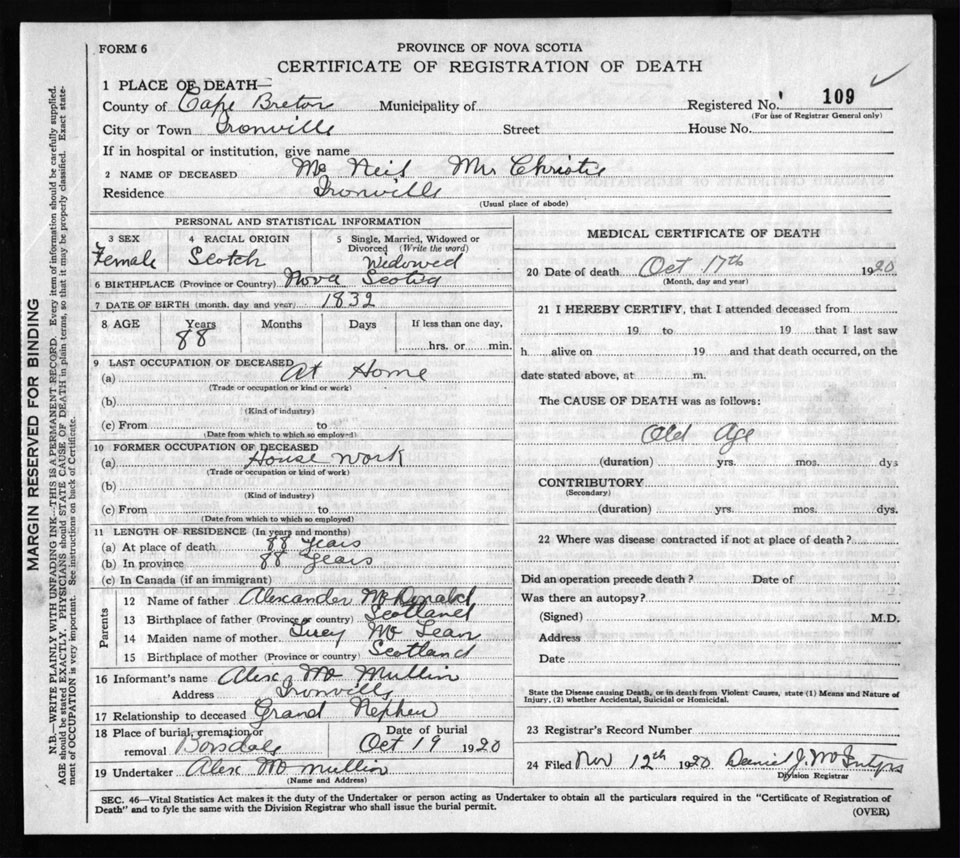 FORM 6
PROVINCE OF NOVA SCOTIA
CERTIFICATE OF REGISTRATION OF DEATH
1 PLACE OF DEATH—
County of Cape Breton Municipality of Registered No. 109
(For use of Registrar General only)
City or Town Ironville Street House No.
If in hospital or institution, give name
2 NAME OF DECEASED Mc Neil Mrs Christie
Residence Ironville
(Usual place of abode)
PERSONAL AND STATISTICAL INFORMATION
3 SEX 4 RACIAL ORIGIN 5 Single, Married, Widowed or Divorced (Write the word)
Female Scotch Widowed
6 BIRTHPLACE (Province or Country) Nova Scotia
7 DATE OF BIRTH (month, day and year) 1832
8 AGE Years Months Days If less than one day,
88 hrs. or min.
9 LAST OCCUPATION OF DECEASED
(a) At Home
(Trade or occupation or kind or work)
(b)
(Kind of industry)
(c) From to
(Date from which to which so employed)
10 FORMER OCCUPATION OF DECEASED
(a) House work
(Trade or occupation or kind of work)
(b)
(Kind of industry)
(c) From to
(Date from which to which so employed)
11 LENGTH OF RESIDENCE (In years and months)
(a) At place of death 88 years
(b) In province 88 years
(c) In Canada (if an immigrant)
Parents
12 Name of father Alexander McDonald
13 Birthplace of father (Province or country) Scotland
14 Maiden name of mother Lucy Mc Lean
15 Birthplace of mother (Province or country) Scotland
16 Informant's name Alex Mc Mullin
Address Ironville
17 Relationship to deceased Grand Nephew
18 Place of burial, cremation or removal Boisdale Date of burial Oct 19 1920
19 Undertaker Alex Mc mullin
(Name and Address)
MEDICAL CERTIFICATE OF DEATH
20 Date of death Oct 17th 1920
(Month, day and year)
21 I HEREBY CERTIFY, that I attended deceased from
19 to 19 that I last saw
h alive on 19 and that death occurred, on the
date stated above, at m.
The CAUSE OF DEATH was as follows:
Old Age
(duration) yrs. mos. dys
CONTRIBUTORY
(Secondary)
(duration) yrs. mos. dys.
22 Where was disease contracted if not at place of death?
Did an operation precede death? Date of
Was there an autopsy?
(Signed) M.D.
Address
Date
State the Disease causing Death, or in death from Violent Causes, state (1) Means and Nature of
Injury, (2) whether Accidental, Suicidal or Homicidal.
23 Registrar's Record Number
24 Filed Nov 12th 1920 Daniel J. McIntyre
Division Registrar
SEC. 46—Vital Statistics Act makes it the duty of the Undertaker or person acting as Undertaker to obtain all the particulars required in the "Certificate of Registration of
Death" and to fyle the same with the Division Registrar who shall issue the burial permit.
(OVER)
MARGIN RESERVED FOR BINDING
N.B.—WRITE PLAINLY WITH UNFADING INK—THIS IS A PERMANENT RECORD. Every item of information should be carefully supplied.
AGE should be stated EXACTLY. PHYSICIANS should STATE CAUSE OF DEATH in plain terms, so that it may be properly classified. Exact state-
ment of OCCUPATION is very important. See instructions on back of Certificate.